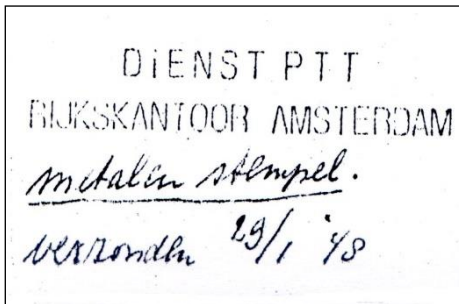 DiENST PTT
RIJKSKANTOOR AMSTERDAM
metalen stempel.
verzonden 29/1 '48